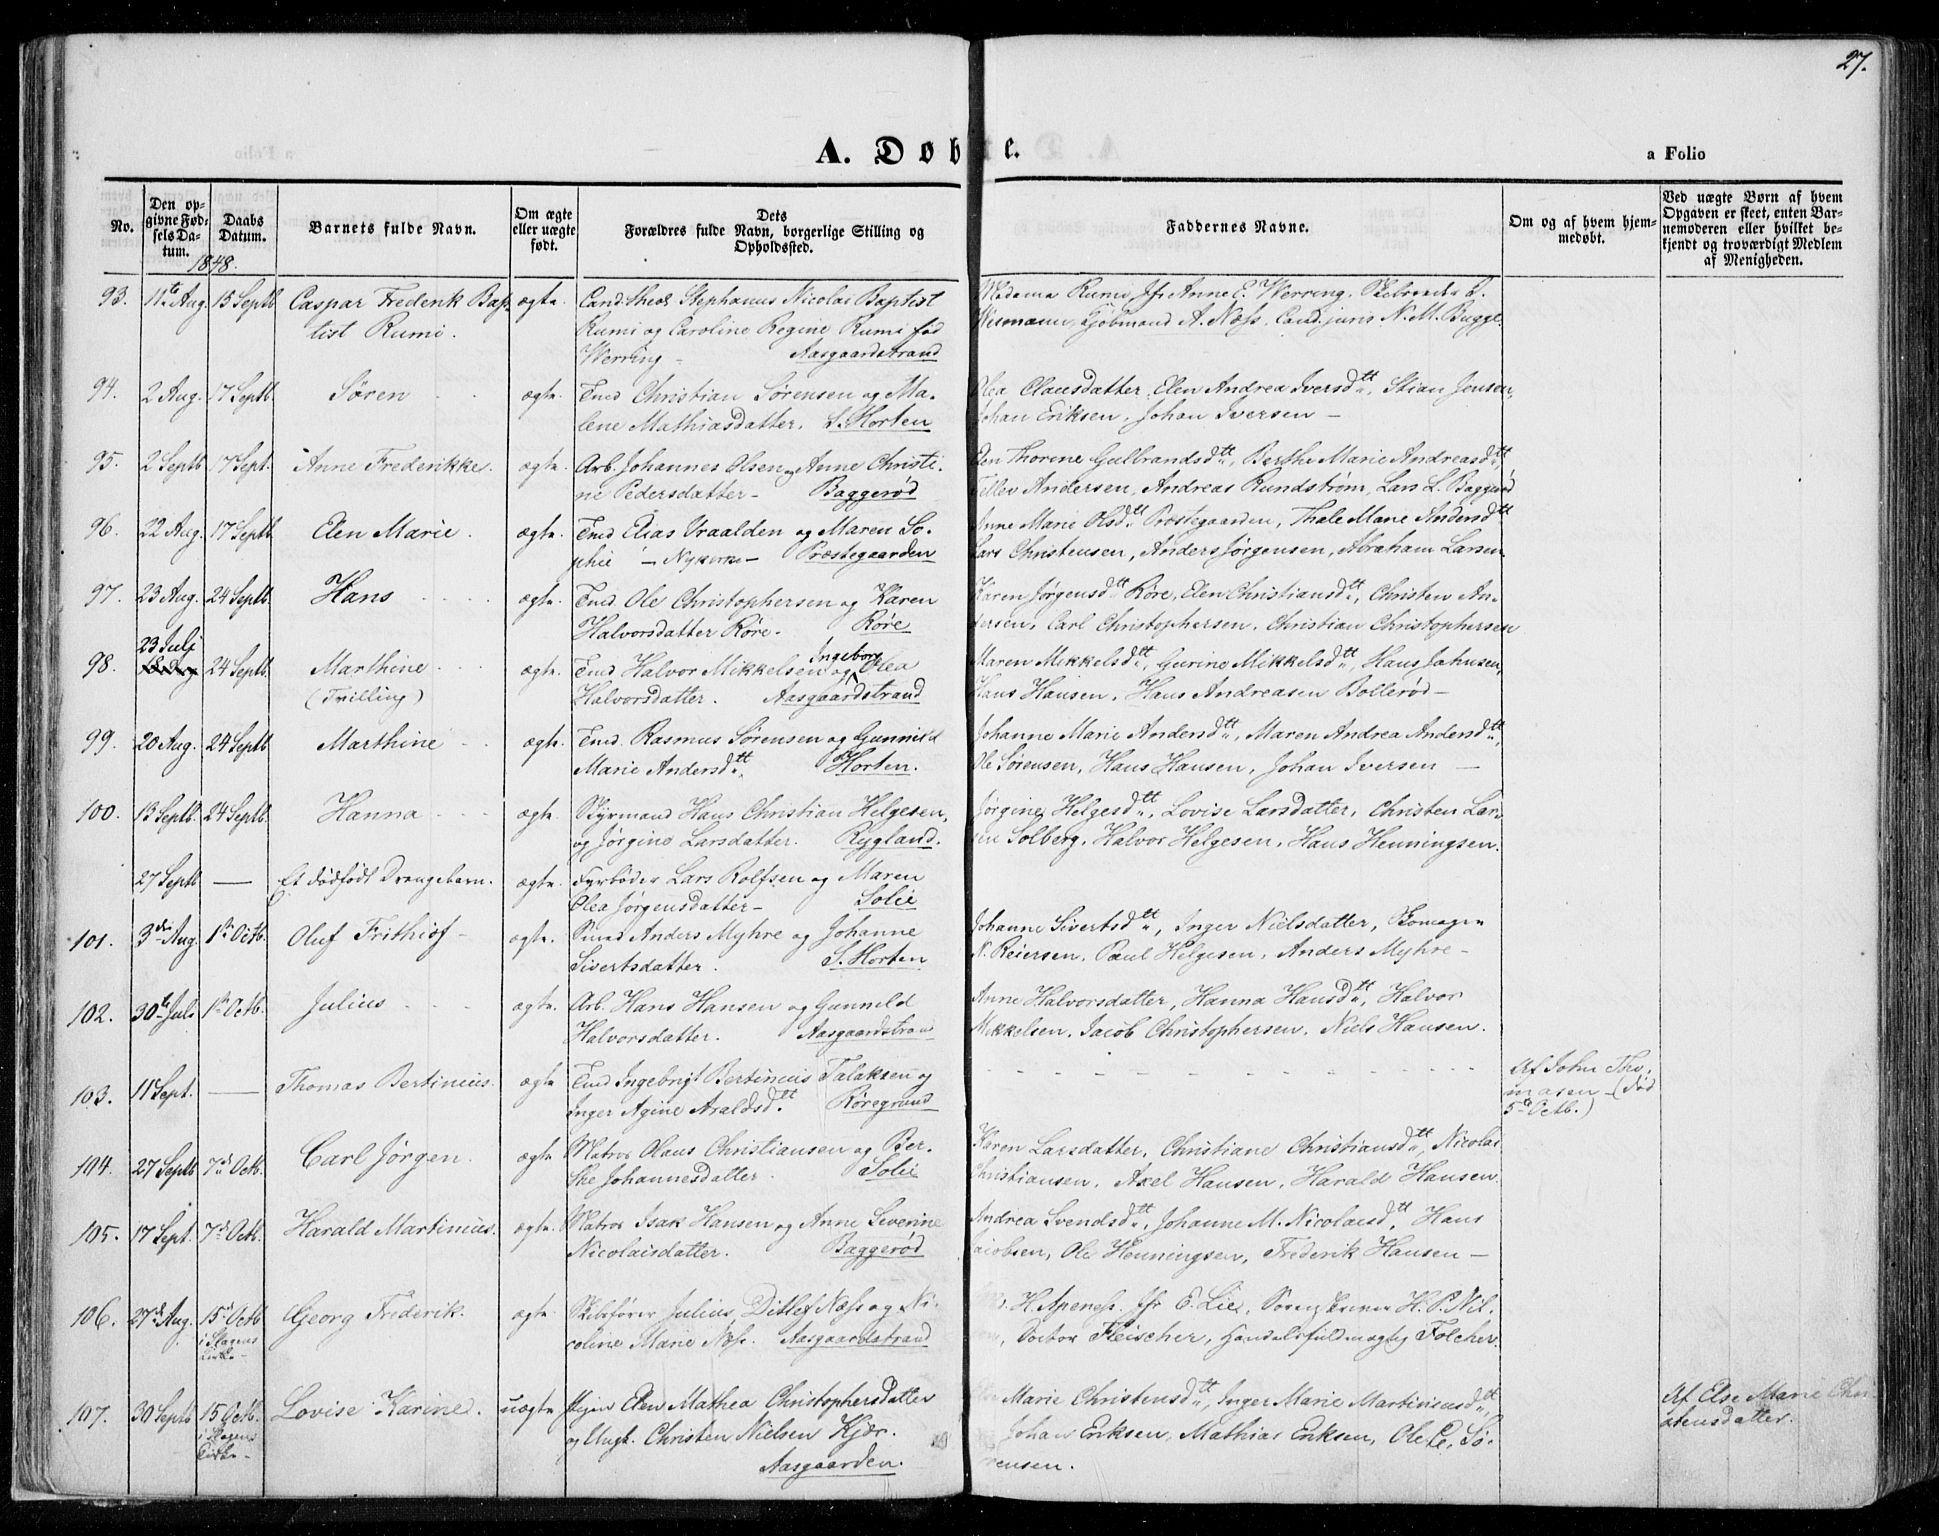 27.
A. Døbte.
a Folio
No.
Den op-
givne Fød-
sels Da-
tum.
Daabs
Datum.
Barnets fulde Navn.
Om ægte
eller uægte
født.
Dets
Forældres fulde Navn, borgerlige Stilling og
Opholdssted.
Faddernes Navne.
Om og af hvem hjem-
medøbt.
Ved uægte Børn af hvem
Opgaven er skeet, enten Bar-
nemoderen eller hvilket be-
kjendt og troværdigt Medlem
af Menigheden.
1848.
93. 11te Aug. 15 Septb Caspar Frederik Bap- ægte. Cand: theol. Stephanus Nicolai Baptist Madame Rumi, Jfr Anne C. Werring,
tist Rumi. Rumi og Caroline Regine Rumi fød Wesmann, Kjøbmand A. Næss, Cand. juris N. M. Bugge.
Werring - Aasgaardstrand
94. 2 Aug. 17 Septb. Søren ægte. Tmd Christian Sørensen og Ma- Olea Clausdatter, Elen Andrea Iversdtt, Stian Jensen,
lene Mathiasdatter. S. Horten Johan Eriksen, Johan Iversen -
95. 2 Septb 17 Sept. Anne Frederikke. ægte. Arb. Johannes Olsen og Anne Christi- Elen Thorine Gulbrandsdtt, Berthe Marie Andreasdtt,
ne Pedersdatter - Baggerød Tellev Andersen, Andreas Rundstrøm, Lars L. Baggerød
96. 22 Aug. 17 Septb Elen Marie. ægte. Tmd Elias Vraalden og Maren So- Anne Marie Olsdtt Præstegaarden, Thale Marie Andersdtt
phie - Nykirke - Præstegaarden Lars Christensen, Anders Jørgensen, Abraham Larsen
97. 23 Aug. 24 Septb. Hans ægte. Tmd. Ole Christophersen og Karen Karen Jørgensdtt Røre, Elen Christiansdtt, Christen An-
Halvorsdatter Røre. Røre dersen, Carl Christophersen, Christian Christophersen
23 Juli
98. 24 Septb. Marthine ægte. Tmd Halvor Mikkelsen og Ingeborg Olea Maren Mikkelsdtt, Gurine Mikkelsdtt, Hans Jahnsen,
(Tvilling) Halvorsdatter. Aasgaardstrand Hans Hansen, Hans Andreasen Bollerød -
99. 20 Aug. 24 Septb Marthine ægte. Tmd. Rasmus Sørensen og Gunnild Johanne Marie Andersdtt, Maren Andrea Andersdtt,
Marie Andersdtt. Horten. Ole Sørensen, Hans Hansen, Johan Iversen -
100. 13 Septb. 24 Septb. Hanna ægte. Styrmand Hans Christian Helgesen, Jørgine Helgesdtt, Lovise Larsdatter, Christen Lar-
og Jørgine Larsdatter. Rygland. sen Solberg, Halvor Helgesen, Hans Henningsen.
27 Septb — Et dødfødt Drengebarn. ægte. Fyrbøder Lars Rolfsen og Maren
Olea Jørgensdatter - Solie
101. 3die Aug. 1ste Octb. Oluf Frithiof - ægte. Smed Anders Myhre og Johanne Johanne Sivertsdtt, Inger Nielsdatter, Skomager
Sivertsdatter. S. Horten N. Reiersen, Paul Helgesen, Anders Myhre -
102. 30te Juli 1ste Octb. Julius ægte. Arb. Hans Hansen og Gunnild Anne Halvorsdatter, Hanna Hansdtt, Halvor
Halvorsdatter. Aasgaardstrand Mikkelsen, Jacob Christophersen, Niels Hansen.
103. 11 Sept. — Thomas Bertinius. ægte Tmd Ingebrigt Bertinius Talaksen og Af John Tho-
Inger Agine Araldsdtt. Røregrund masen - (død
5te Octb.)
104. 27 Septb 7de Octb. Carl Jørgen. ægte Matros Olaus Christiansen og Ber- Karen Larsdatter, Christiane Christiansdtt, Nicolai
the Johannesdatter. Solie Christiansen, Axel Hansen, Harald Hansen.
105. 17 Sept. 7de Octb. Harald Martinius. ægte. Matros Isak Hansen og Anne Severine Andrea Svendsdtt, Johanne M. Nicolaisdtt, Hans
Nicolaisdatter. Baggerød Jacobsen, Ole Henningsen, Frederik Hansen -
106. 27de Aug. 15de Octb Georg Frederik. ægte Skibsfører Julius Ditlef Næss og Ni- H. Apenæss, Jfr E. Lie, H. P. Nil-
i Slagens coline Marie Næss. Aasgaardstrand Doctor Fleischer, Handelsfuldmægtig Folcher.
Kirke -
107. 30 Septb 15 Octb. Lovise Karine. uægte Pigen Elen Mathea Christophersdatter Marie Christensdtt, Inger Marie Martiniusdtt, Af Else Marie Chri-
i Slagens og Ungk. Christen Nielsen Kjær. Johan Eriksen, Mathias Eriksen, Ole C. Sø- stensdatter.
Kirke - Aasgaarden. rensen.